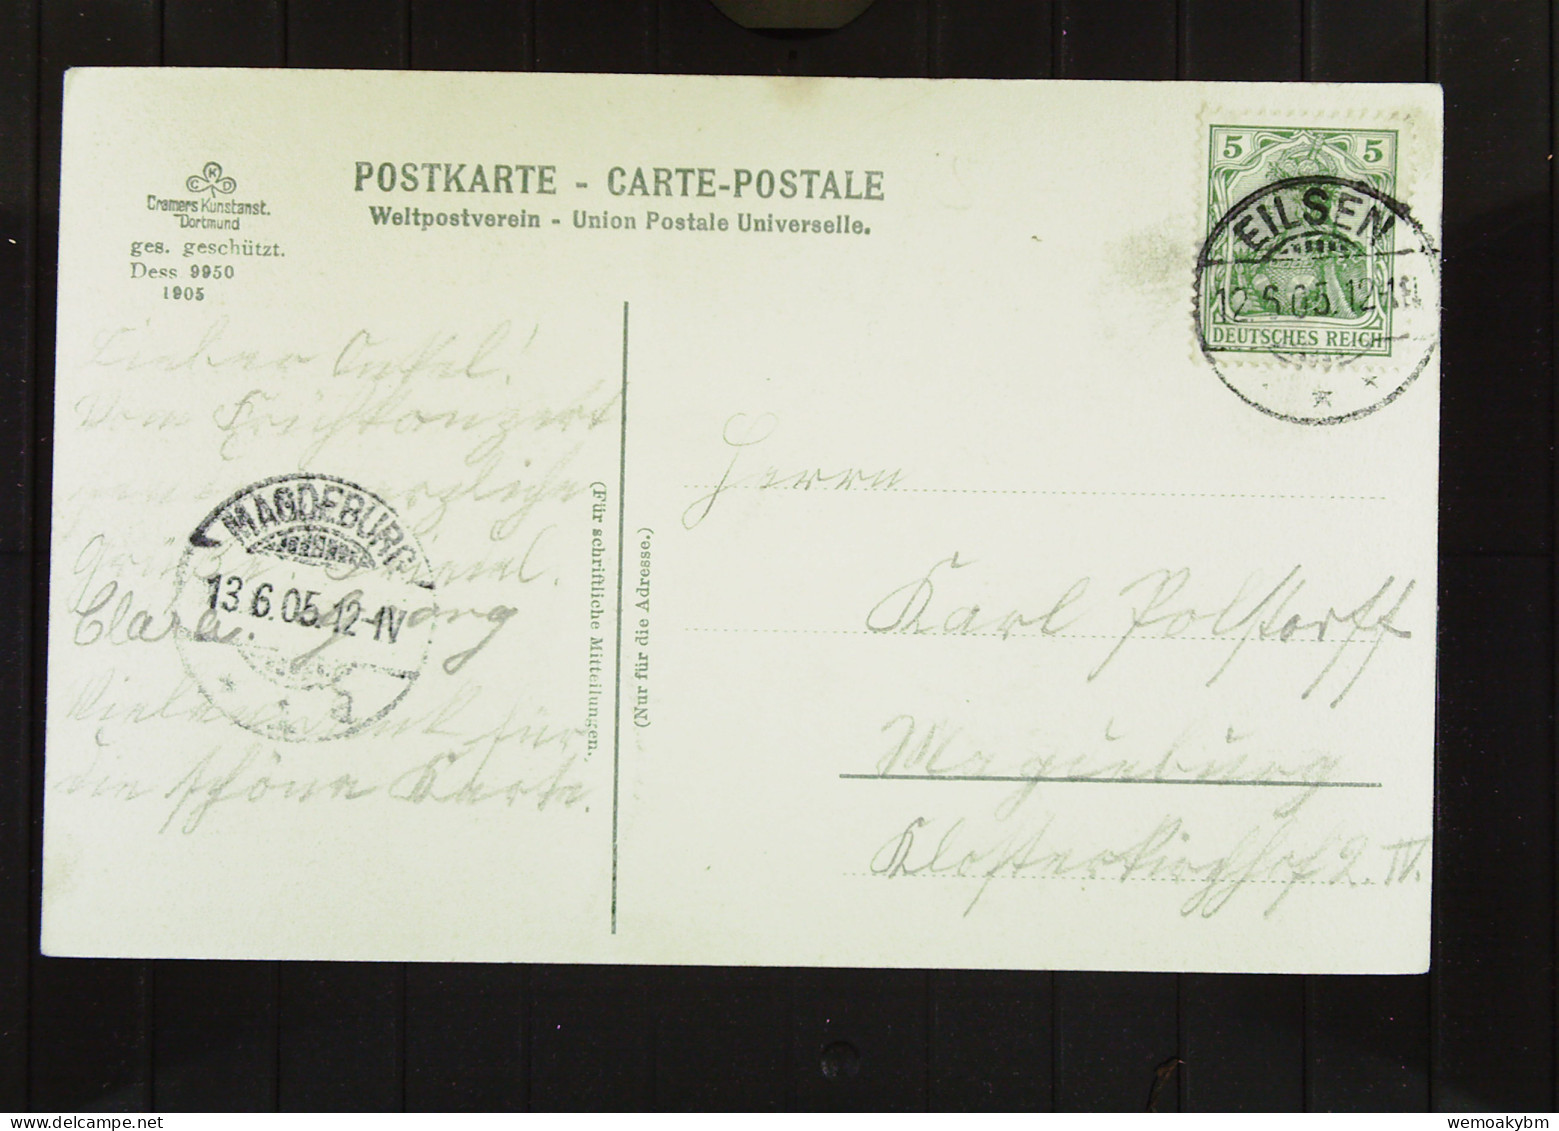 CKD
Cramers Kunstanst.
Dortmund
ges. geschützt.
Dess 9950
1905
POSTKARTE - CARTE-POSTALE
Weltpostverein - Union Postale Universelle.
5 5
DEUTSCHES REICH
EILSEN
12.6.05. 12-1N
Lieber Onkel!
Vom Frühkonzert
herzliche
Grüße
Clara. Georg
Vielen Dank für
die schöne Karte.
MAGDEBURG
13.6.05. 12-1V
(Für schriftliche Mitteilungen.)
(Nur für die Adresse.)
Herrn
Karl Polstorff
Magdeburg
Klosterkirchhof 2. IV.
wemoakybm